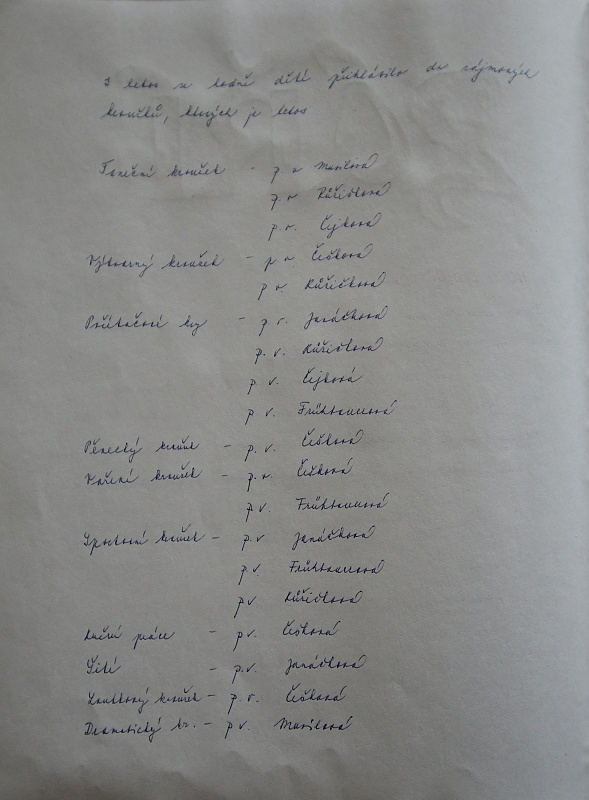 I letos se hodně dětí přihlásilo do zájmových
kroužků, kterých je letos
Taneční kroužek - p. v. Marilová
p. v. Růžičková
p. v. Čejková
Výtvarný kroužek - p v. Češková
p v. Růžičková
Počítačové hry - p. v. Janáčková
p. v. Růžičková
p v. Čejková
p v. Frühbauerová
Pěvecký kroužek - p. v. Češková
Vaření kroužek - p. v. Češková
p v. Frühbauerová
Sportovní kroužek - p. v Janáčková
p v. Frühbauerová
p v. Růžičková
Ruční práce - p v. Češková
Šití - p. v. Janáčková
Loutkový kroužek - p. v. Češková
Dramatický kr. - p v. Marilová